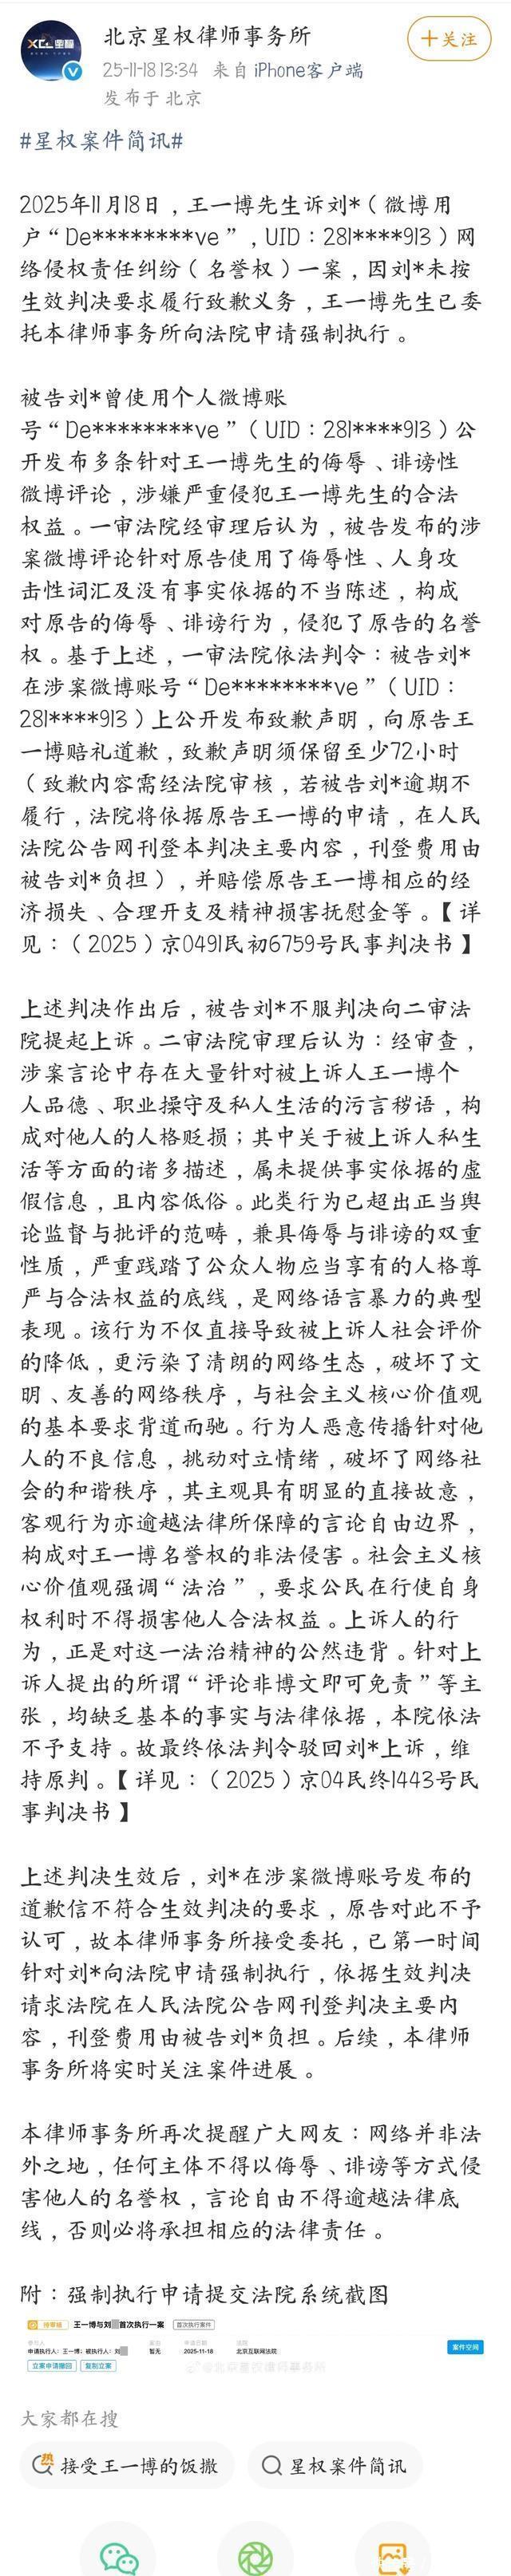 XCL 星权
北京星权律师事务所
+关注
25-11-18 13:34 来自 iPhone客户端
发布于 北京
#星权案件简讯#
2025年11月18日，王一博先生诉刘*（微博用
户“De********ve”，UID：281****913）网
络侵权责任纠纷（名誉权）一案，因刘*未按
生效判决要求履行致歉义务，王一博先生已委
托本律师事务所向法院申请强制执行。
被告刘*曾使用个人微博账
号“De********ve”（UID：281****913）公
开发布多条针对王一博先生的侮辱、诽谤性
微博评论，涉嫌严重侵犯王一博先生的合法
权益。一审法院经审理后认为，被告发布的涉
案微博评论针对原告使用了侮辱性、人身攻
击性词汇及没有事实依据的不当陈述，构成
对原告的侮辱、诽谤行为，侵犯了原告的名誉
权。基于上述，一审法院依法判令：被告刘*
在涉案微博账号“De********ve”（UID：
281****913）上公开发布致歉声明，向原告王
一博赔礼道歉，致歉声明须保留至少72小时
（致歉内容需经法院审核，若被告刘*逾期不
履行，法院将依据原告王一博的申请，在人民
法院公告网刊登本判决主要内容，刊登费用由
被告刘*负担），并赔偿原告王一博相应的经
济损失、合理开支及精神损害抚慰金等。【详
见：（2025）京0491民初6759号民事判决书】
上述判决作出后，被告刘*不服判决向二审法
院提起上诉。二审法院审理后认为：经审查，
涉案言论中存在大量针对被上诉人王一博个
人品德、职业操守及私人生活的污言秽语，构
成对他人的人格贬损；其中关于被上诉人私生
活等方面的诸多描述，属未提供事实依据的虚
假信息，且内容低俗。此类行为已超出正当舆
论监督与批评的范畴，兼具侮辱与诽谤的双重
性质，严重践踏了公众人物应当享有的人格尊
严与合法权益的底线，是网络语言暴力的典型
表现。该行为不仅直接导致被上诉人社会评价
的降低，更污染了清朗的网络生态，破坏了文
明、友善的网络秩序，与社会主义核心价值观
的基本要求背道而驰。行为人恶意传播针对他
人的不良信息，挑动对立情绪，破坏了网络社
会的和谐秩序，其主观具有明显的直接故意，
客观行为亦逾越法律所保障的言论自由边界，
构成对王一博名誉权的非法侵害。社会主义核
心价值观强调“法治”，要求公民在行使自身
权利时不得损害他人合法权益。上诉人的行
为，正是对这一法治精神的公然违背。针对上
诉人提出的所谓“评论非博文即可免责”等主
张，均缺乏基本的事实与法律依据，本院依法
不予支持。故最终依法判令驳回刘*上诉，维
持原判。【详见：（2025）京04民终1443号民
事判决书】
上述判决生效后，刘*在涉案微博账号发布的
道歉信不符合生效判决的要求，原告对此不予
认可，故本律师事务所接受委托，已第一时间
针对刘*向法院申请强制执行，依据生效判决
请求法院在人民法院公告网刊登判决主要内
容，刊登费用由被告刘*负担。后续，本律师
事务所将实时关注案件进展。
本律师事务所再次提醒广大网友：网络并非法
外之地，任何主体不得以侮辱、诽谤等方式侵
害他人的名誉权，言论自由不得逾越法律底
线，否则必将承担相应的法律责任。
附：强制执行申请提交法院系统截图
待审核 王一博与刘 首次执行一案 首次执行案件
申请日期 法院
申请执行人：王一博；被执行人：刘 暂无 2025-11-18 北京互联网法院
案件空间
立案申请撤回 复制立案
@北京星权律师事务所
大家都在搜
热 接受王一博的饭撒 星权案件简讯